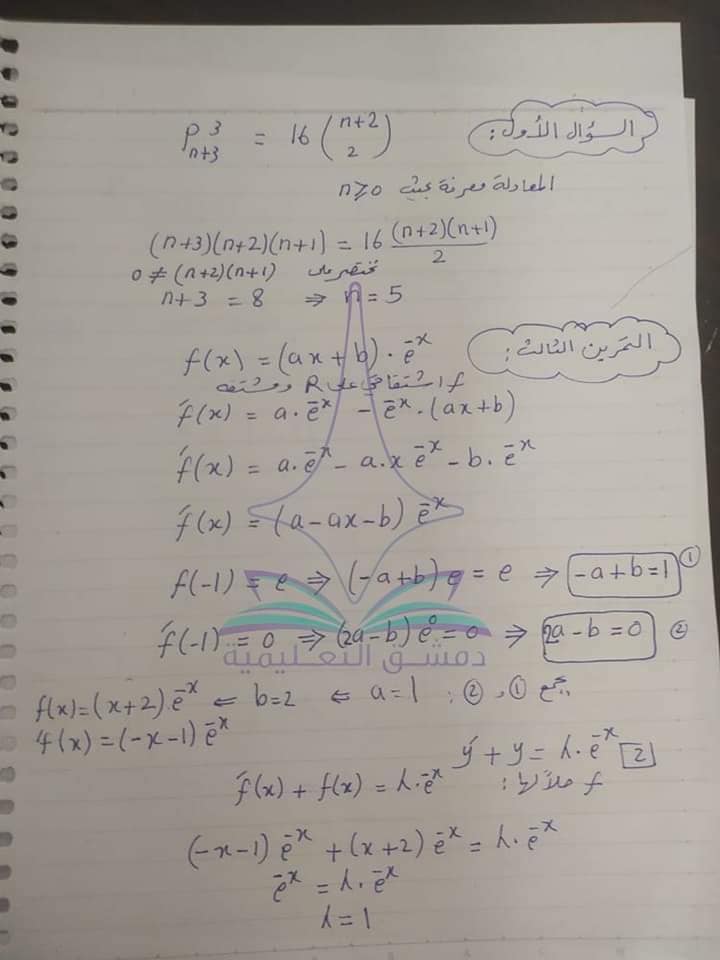 السؤال الأول:
P³ₙ₊₃ = 16 (n+2 2)
المعادلة معرفة بحيث n ⩾ 0
(n+3)(n+2)(n+1) = 16 (n+2)(n+1)/2
نختصر على (n+2)(n+1) ≠ 0
n+3 = 8 ⇒ n = 5
التمرين الثالث:
f(x) = (ax+b) · e⁻ˣ
f اشتقاقي على R ومشتقه
f́(x) = a · e⁻ˣ − e⁻ˣ · (ax+b)
f́(x) = a · e⁻ˣ − a · x e⁻ˣ − b · e⁻ˣ
f́(x) = (a − ax − b) e⁻ˣ
f(-1) = e ⇒ (-a+b) e = e ⇒ -a+b=1 ①
f́(-1) = 0 ⇒ (2a-b) e⁰ = 0 ⇒ 2a-b=0 ②
دمشق التعليمية
بجمع ① و ② : a=1 ⇐ b=2 ⇐ f(x)=(x+2) e⁻ˣ
f́(x) = (-x-1) e⁻ˣ
2 ý + y = λ · e⁻ˣ
f حلاً لها:
f́(x) + f(x) = λ · e⁻ˣ
(-x-1) e⁻ˣ + (x+2) e⁻ˣ = λ · e⁻ˣ
e⁻ˣ = λ · e⁻ˣ
λ = 1